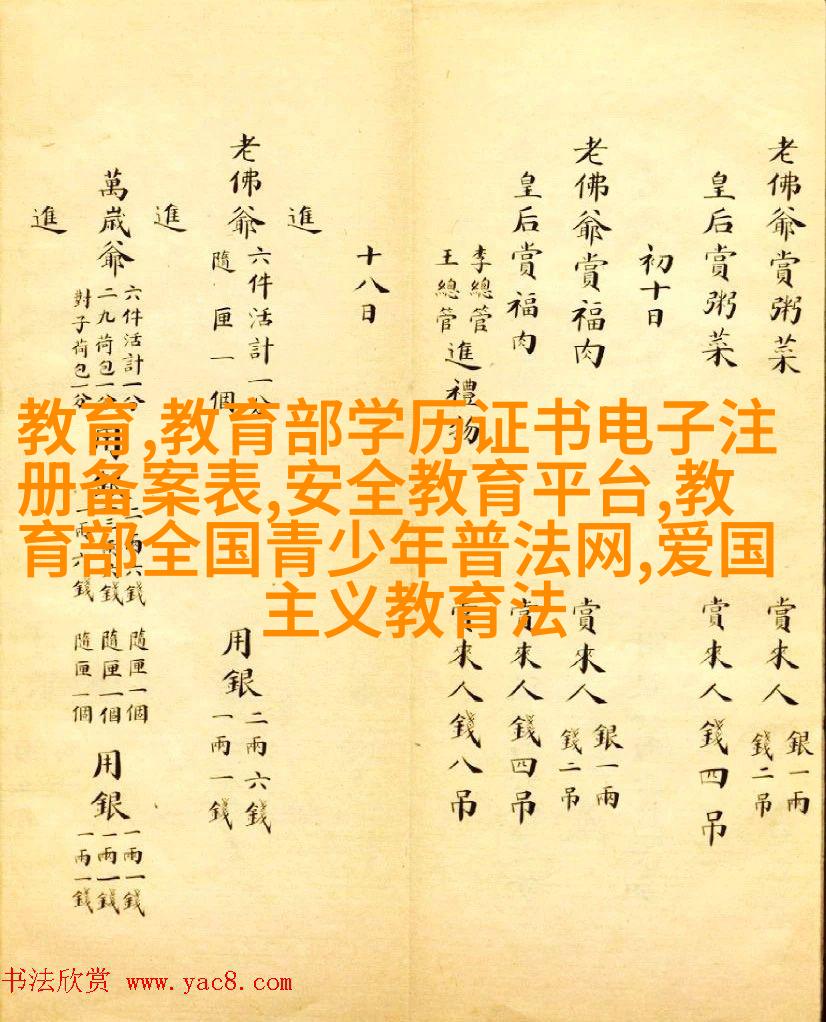 老佛爺賞粥菜 賞來人 銀一兩 錢二吊
皇后賞粥菜 賞來人錢四吊
初十日
老佛爺賞福肉 賞來人 銀一兩 錢二吊
皇后賞福肉 賞來人錢四吊
李總管 王總管 進禮物 賞來人錢八吊
十八日
進
老佛爺 六件活計一分 隨匣一個 用銀 二兩六錢 一兩一錢
進
萬歲爺 六件活計一分 二九荷包一分 對子荷包一分 用銀 二兩六錢 兩錢 一兩六錢 隨匣一個 隨匣一個 隨匣一個 用銀 一兩一錢 一兩一錢 一兩一錢
進
教育,教育部学历证书电子注
册备案表,安全教育平台,教
育部全国青少年普法网,爱国
主义教育法
书法欣赏 www.yac8.com